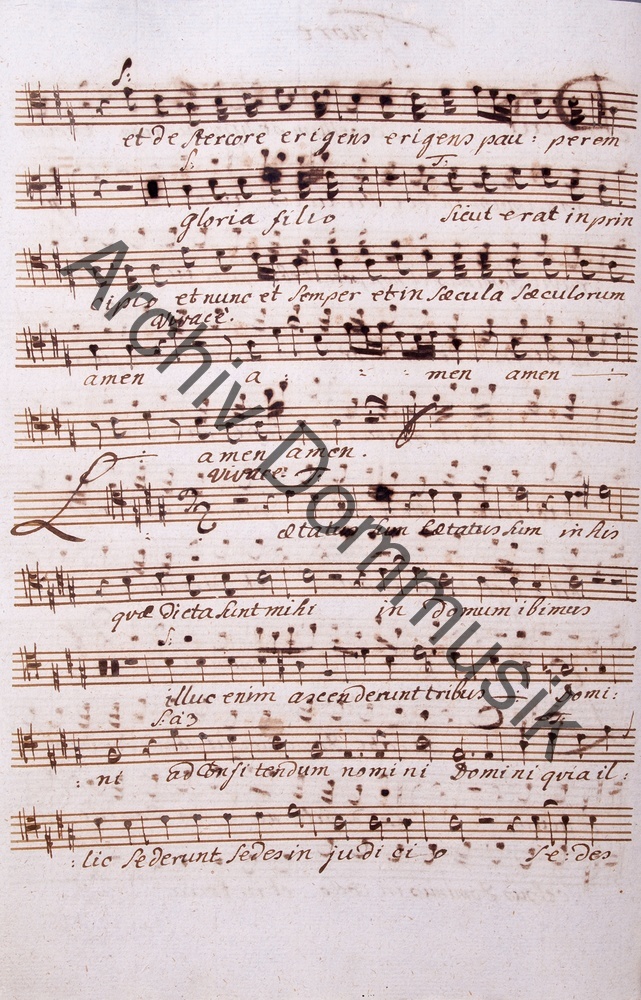 S:
et de stercore erigens erigens pau: perem
S: T:
gloria filio sicut erat in prin
cipio et nunc et semper et in sæcula sæculorum
vivace.
amen a: men amen
amen amen.
vivace. T:
Lætatus sum Lætatus sum in his
quæ dicta sunt mihi in domum ibimus
S:
illuc enim ascenderunt tribus domi:
S: a 3
: ni ad Confitendum nomini Domini quia il:
: lic sederunt sedes in judicio se: des
Archiv Dommusik